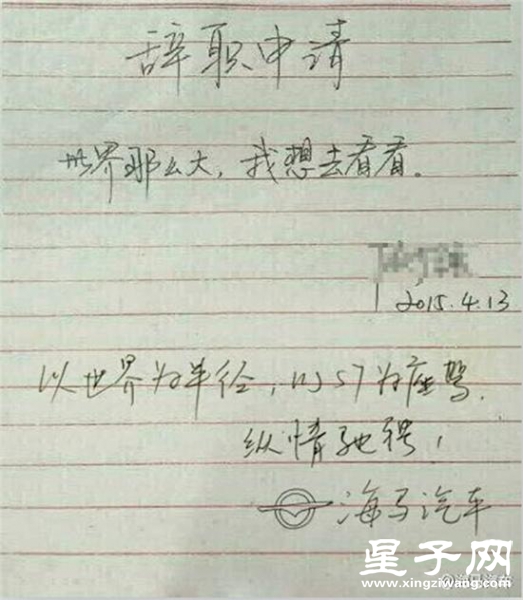 辞职申请
世界那么大，我想去看看。
2015.4.13
以世界为半径，以S7为座驾，
纵情驰骋！
海马汽车
星子网
www.xingziwang.com